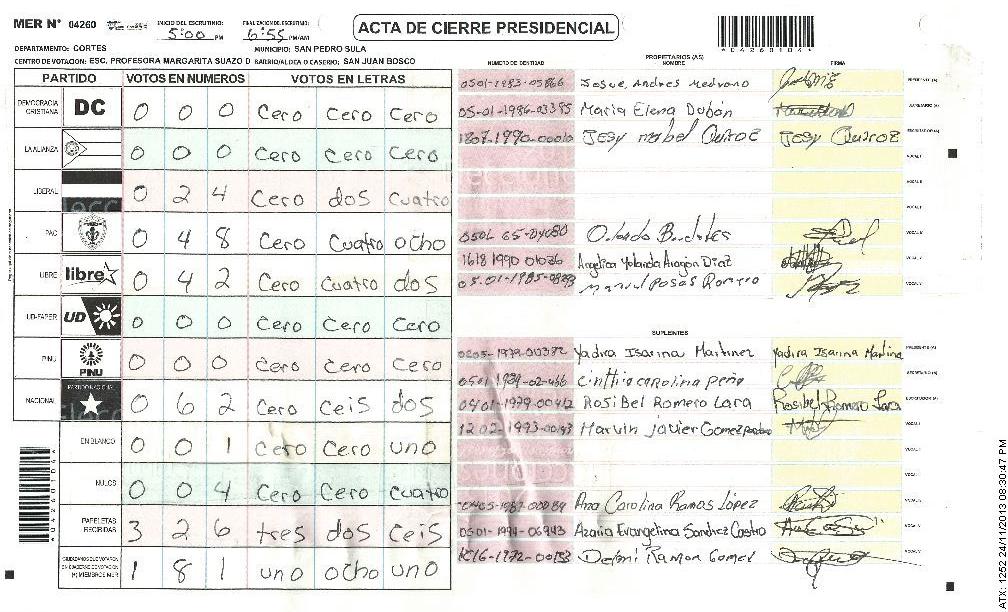 MER N° 04260
INICIO DEL ESCRUTINIO: 5:00 PM
FINALIZACION DE ESCRUTINIO: 6:55 PM/AM
ACTA DE CIERRE PRESIDENCIAL
04260104
DEPARTAMENTO: CORTES
MUNICIPIO: SAN PEDRO SULA
CENTRO DE VOTACION: ESC. PROFESORA MARGARITA SUAZO D BARRIO/ALDEA O CASERIO: SAN JUAN BOSCO
PARTIDO VOTOS EN NUMEROS VOTOS EN LETRAS
DEMOCRACIA CRISTIANA DC 0 0 0 Cero Cero Cero
LA ALIANZA 0 0 0 Cero Cero Cero
LIBERAL 0 2 4 Cero dos cuatro
PAC 0 4 8 Cero Cuatro ocho
LIBRE libre 0 4 2 Cero Cuatro dos
UD-FAPER UD 0 0 0 Cero Cero Cero
PINU PINU 0 0 0 Cero Cero Cero
NACIONAL PARTIDO NACIONAL 0 6 2 Cero Ceis dos
EN BLANCO 0 0 1 Cero Cero uno
NULOS 0 0 4 Cero Cero cuatro
PAPELETAS RECIBIDAS 3 2 6 tres dos Ceis
(+) MIEMBROS MER 1 8 1 uno ocho uno
PROPIETARIOS (AS)
NUMERO DE IDENTIDAD NOMBRE FIRMA
0501-1983-05866 Josue Andres Medrano
05-01-1986-03395 Maria Elena Dubón
1807-1990-00010 Jesy mabel Quiroz Jesy Quiroz
Orlando
1618 1990 01036 Angelica Yolanda Aragon Diaz
Manuel Posas Romero
SUPLENTES
Yadira Isarina Martinez Yadira Isarina Martinez
cinthia carolina peña
0401-1979-00412 Rosibel Romero Lara Rosibel Romero Lara
1202-1993-00193 Marvin Javier Gomez
Ana Carolina Ramos López
0501-1994-06943 Azaria Evangelina Sanchez Castro
Ramon Gomez
04260104
ATX: 1252 24/11/2013 08:30:47 PM